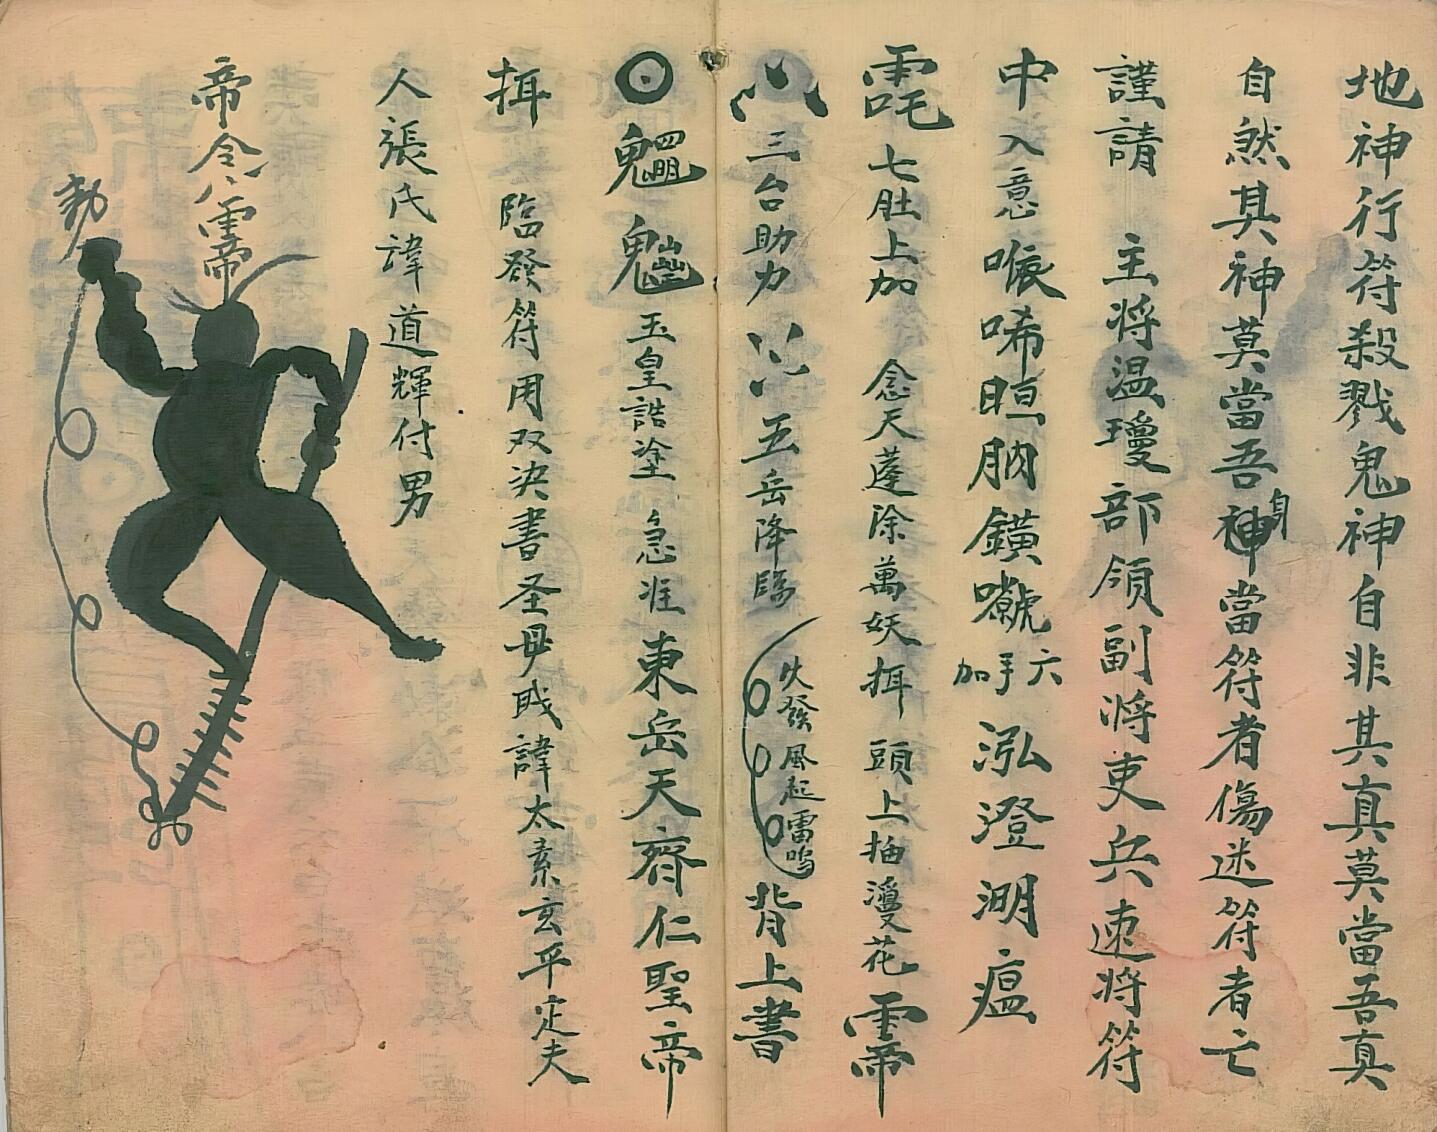 地神行符殺戮鬼神自非其真莫當吾真
自然其神莫當吾神身當符者傷迷符者亡
謹請 主將温瓊部領副將吏兵速將符
中入意喉唏照朒鐄 六手加泓澄湖瘟
七肚上加 念天蓬除萬妖挕 頭上抽漫花
三台助力 五岳降臨 火發風起雷鳴 背上書
玉皇誥塗 急准東岳天齊仁聖帝
挕 臨發符用双決書圣毋戝諱太素玄平定夫
人張氏諱道輝付男
帝令
勅